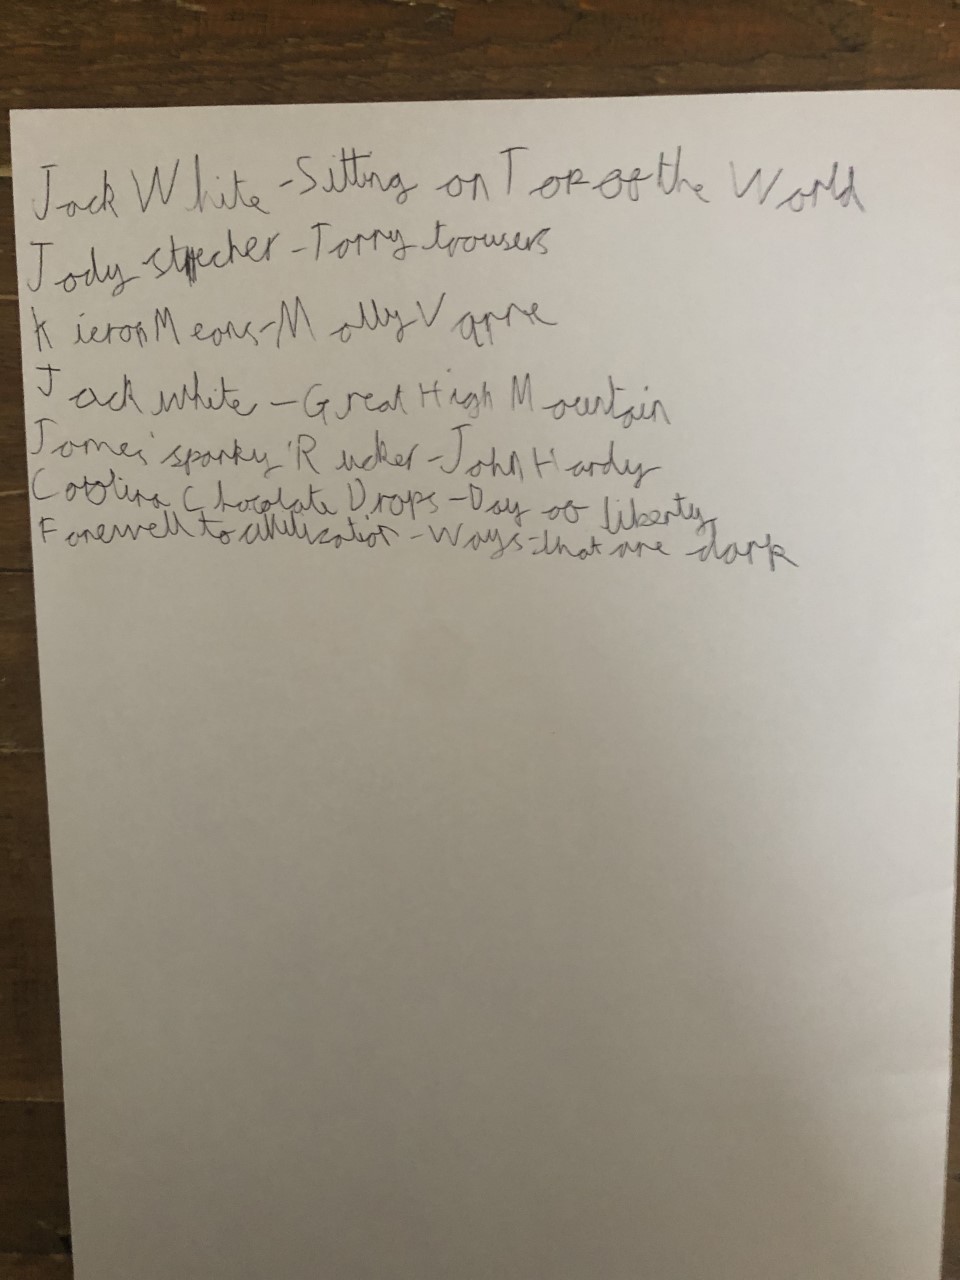 Jack White - Sitting on Top of the World
Jody Stecher - Tarry trousers
Kieron Means - Molly Varne
Jack white - Great High Mountain
James 'sparky' Rucker - John Hardy
Carolina Chocolate Drops - Day of liberty
Farewell to - Ways - that are dark